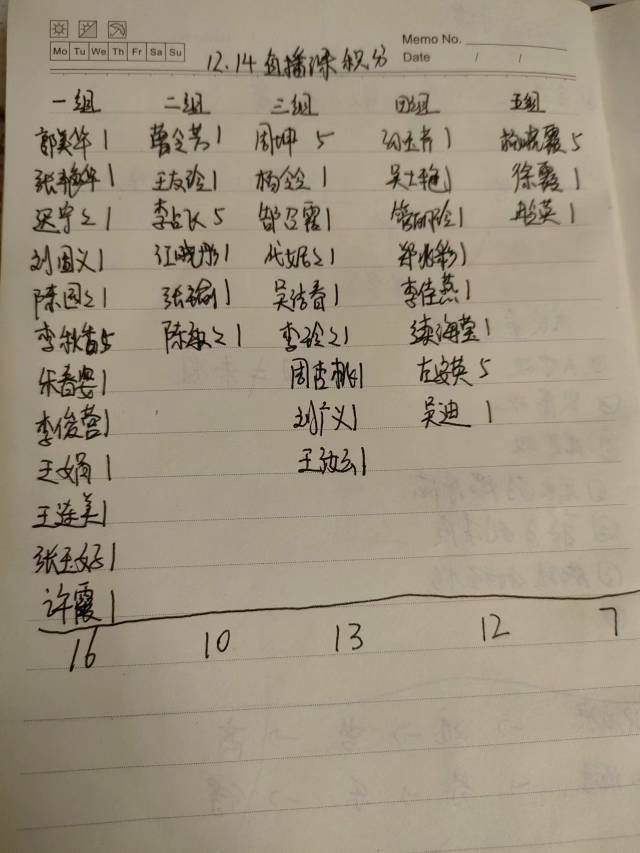 Mo Tu We Th Fr Sa Su
Memo No.
Date / /
12.14直播课积分
一组 二组 三组 四组 五组
郭美华1 曹令芳1 周坤 5 1 杨晓霞5
张艳华1 王友玲1 杨 1 吴士艳1 徐霞1
迟宁之1 李占飞5 1 管丽玲1 彤英1
刘国义1 江晓彤1 1 郑兆彩1
陈园之1 张瑜1 吴洁香1 李佳燕1
李秋香5 陈淑之1 李玲之1 续海莹1
朱春晏1 周杏桃1 左安英5
李俊蓉1 刘广义1 吴迪 1
王娟1 王 云1
王连美1
张玉好1
许霞1
16 10 13 12 7